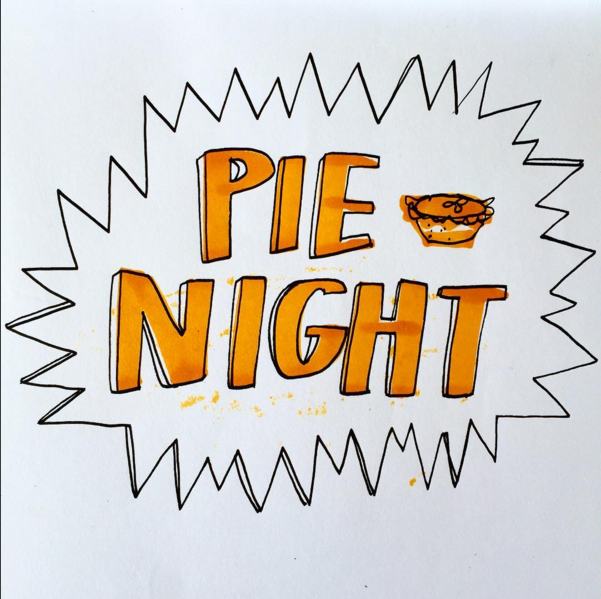 PIE
NIGHT